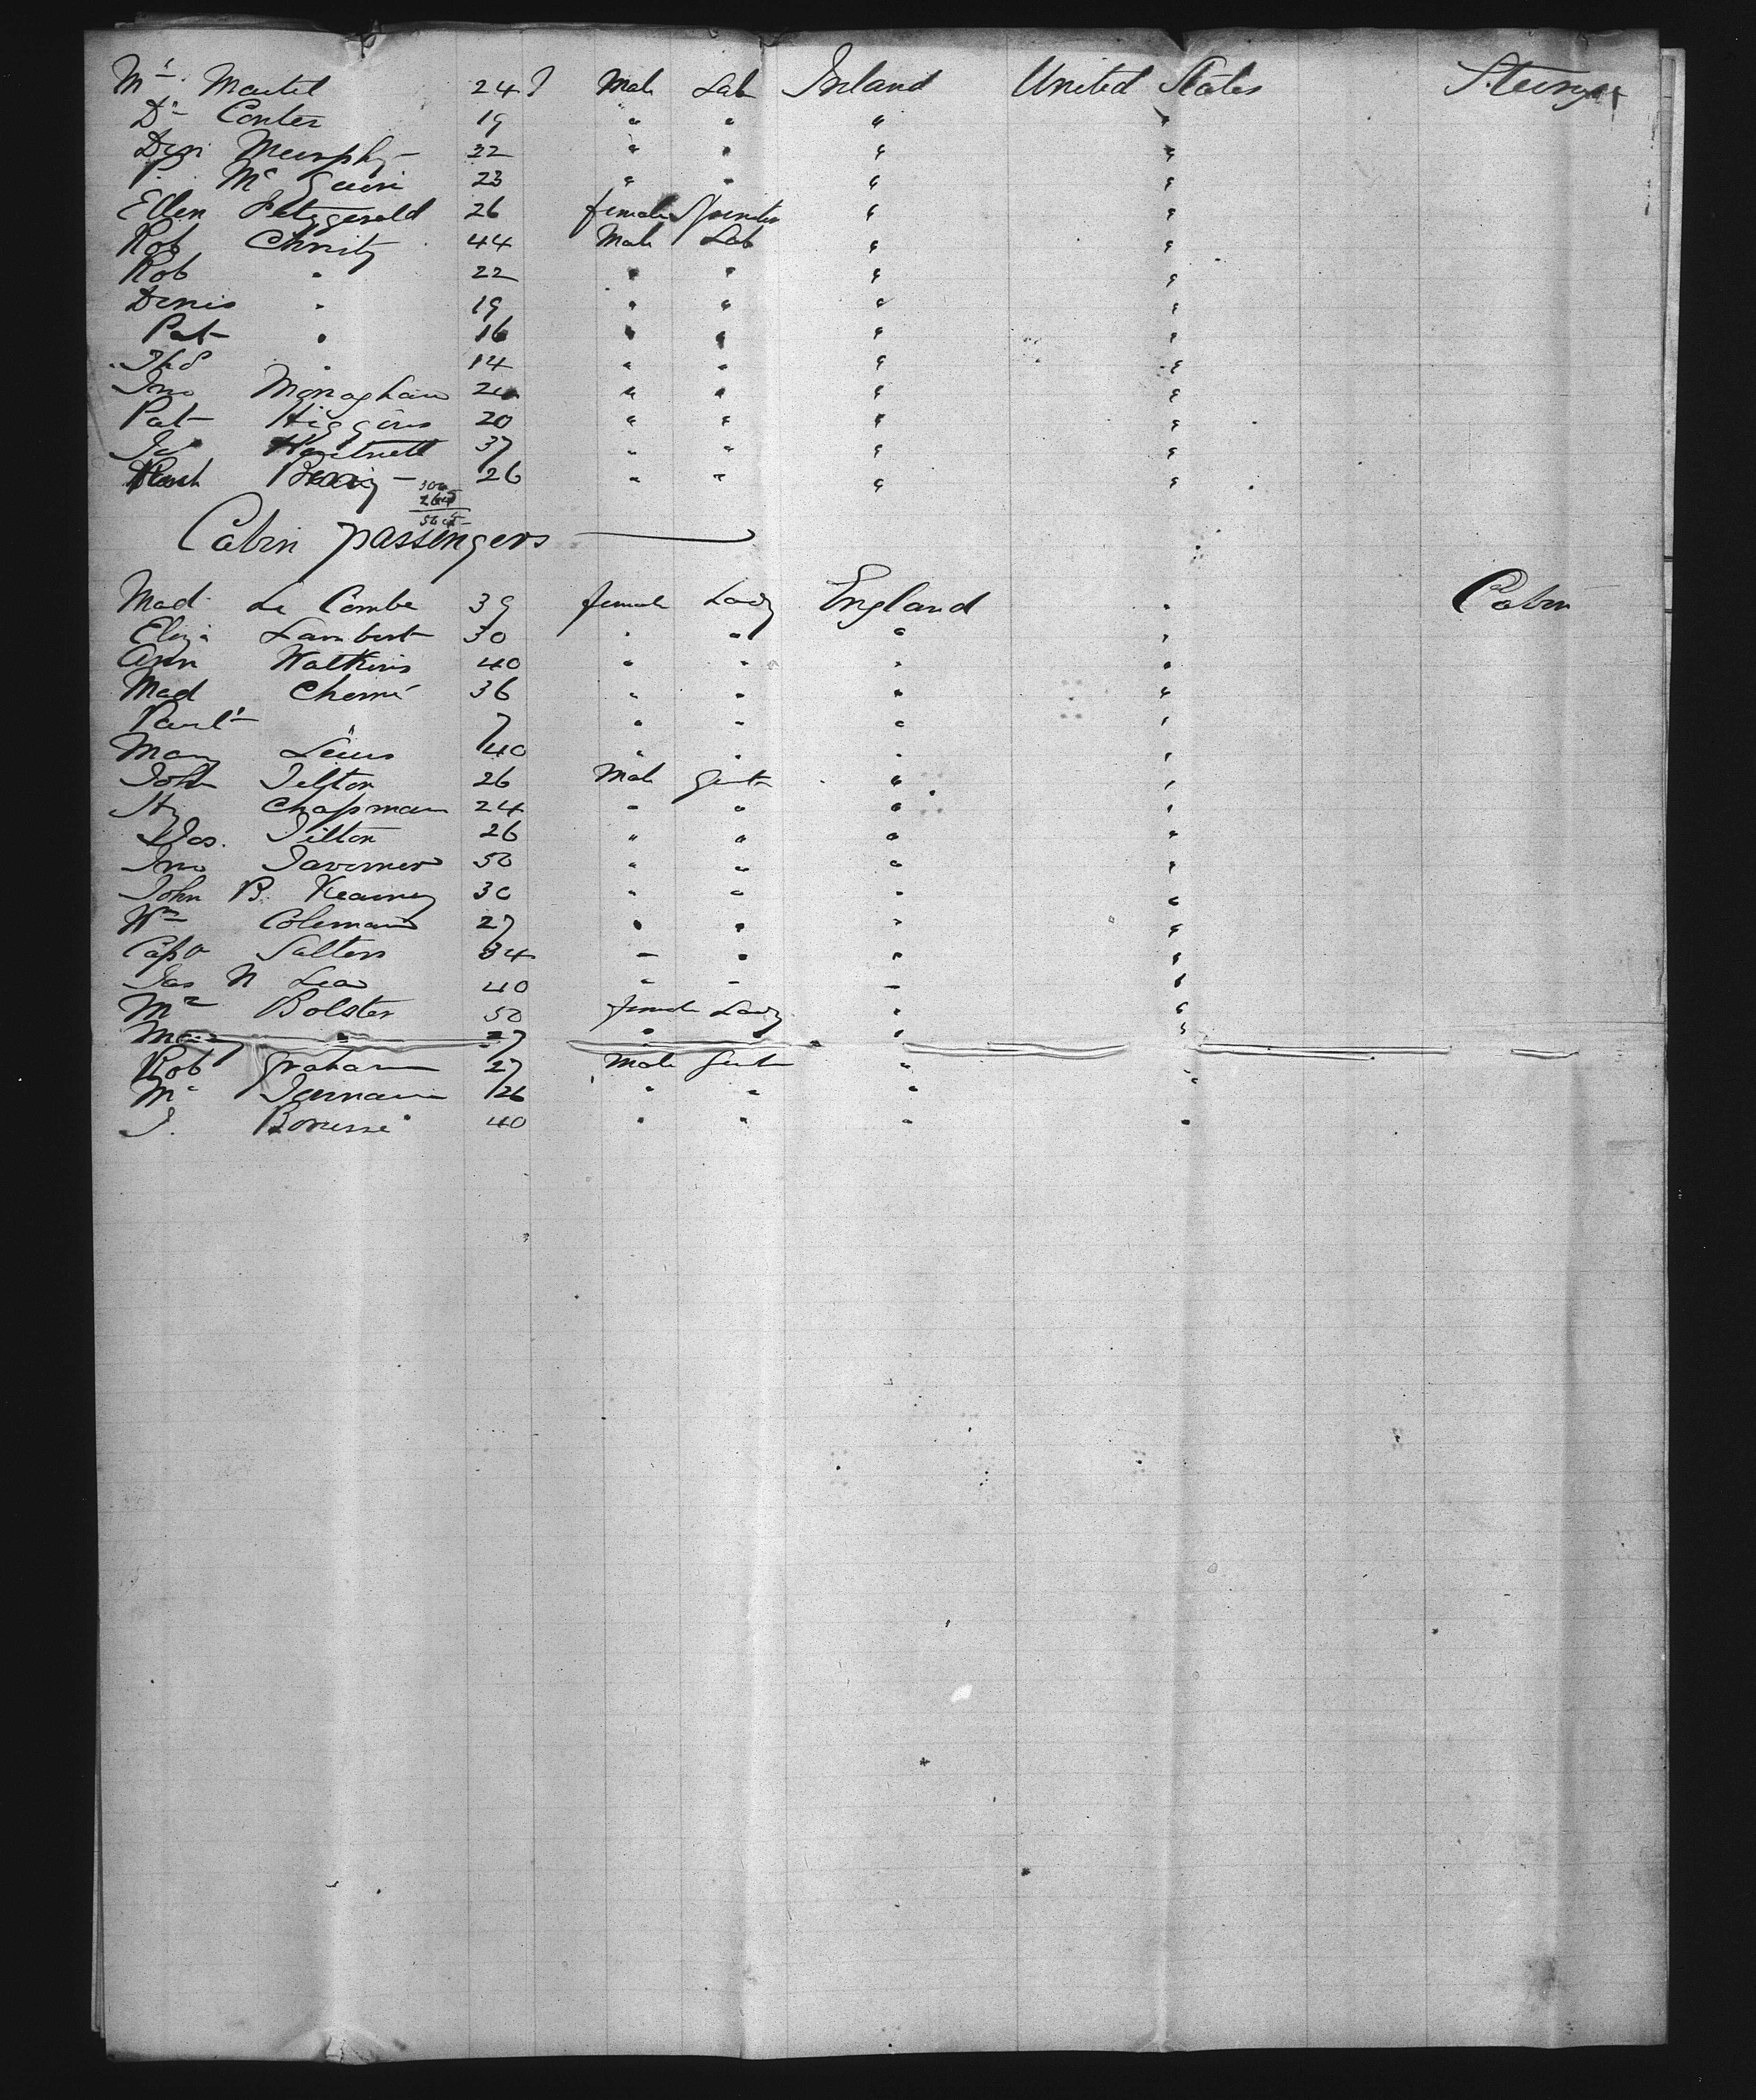 Mr. Martel 24 Male Lab Ireland United States Steerage
Do Conter 19 " " " "
Den Murphy 22 " " " "
P. Mc Guire 23 " " " "
Ellen Fitzgerald 26 female Spinster " "
Rob Christy 44 Male Lab " "
Rob " 22 " " " "
Denis " 19 " " " "
Pat " 16 " " " "
Thos " 14 " " " "
Jno Monaghan " " " "
Pat Higgins 20 " " " "
Ja Hartnett 37 " " " "
26 " " " "
300
264
564
Cabin passengers
Mad Le Combe 39 female Lady England " Cabin
Eliza Lambert 30 " " " "
Ann Watkins 40 " " " "
Mad Cherri 36 " " " "
Paul " 7 " " " "
Mary Lewis 40 " " " "
John Tilton 26 Male Gent " "
Hy Chapman 24 " " " "
Jos. Tilton 26 " " " "
Jno Taverner 50 " " " "
John B. Kearney 30 " " " "
Wm Coleman 27 " " " "
Capt Salters 34 " " " "
Jas N Lea 40 " " " "
Mrs Bolster 50 female Lady " "
Mary " 27 " " " "
Rob Graham 27 Male Gent " "
Mr 26 " " " "
J. 40 " " " "